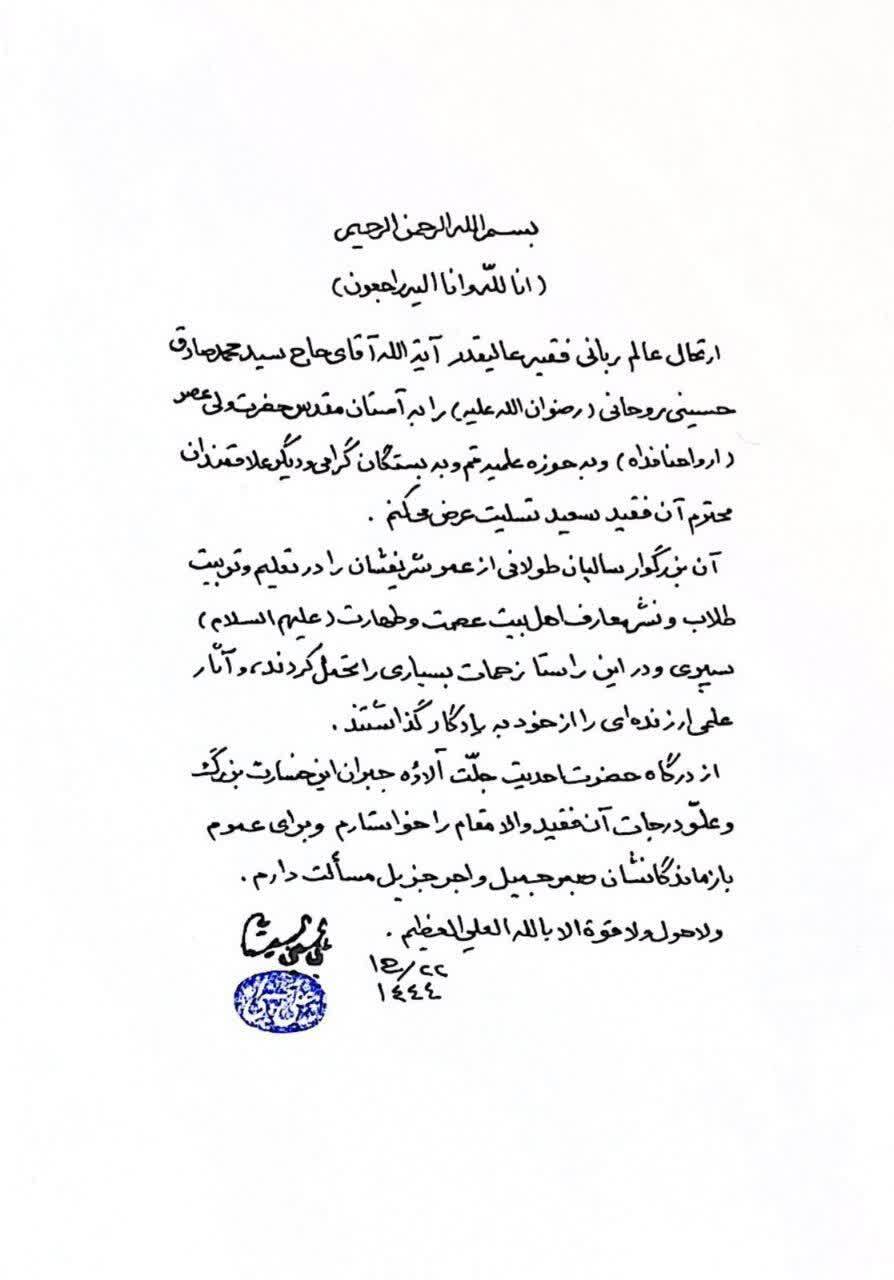 بسم الله الرحمن الرحیم
(انا للّٰه وانا الیه راجعون)
ارتحال عالم ربانی فقیه عالیقدر آیة الله آقای حاج سید محمد صادق
حسینی روحانی (رضوان الله علیه) را به آستان مقدس حضرت ولی عصر
(ارواحنا فداه) و به حوزه علمیه قم و به بستگان گرامی و دیگر علاقمندان
محترم آن فقید سعید تسلیت عرض میکنم .
آن بزرگوار سالیان طولانی از عمر شریفشان را در تعلیم و تربیت
طلاب و نشر معارف اهل بیت عصمت و طهارت (علیهم السلام)
سپری و در این راستا زحمات بسیاری را تحمل کردند، و آثار
علمی ارزنده ای را از خود به یادگار گذاشتند .
از درگاه حضرت احدیت جلّت آلاؤه جبران این خسارت بزرگ
و علوّ درجات آن فقید والا مقام را خواستارم و برای عموم
بازماندگانشان صبر جمیل و اجر جزیل مسألت دارم .
ولا حول ولا قوة الا بالله العلی العظیم .
۲۲/ج۱
۱٤٤٤